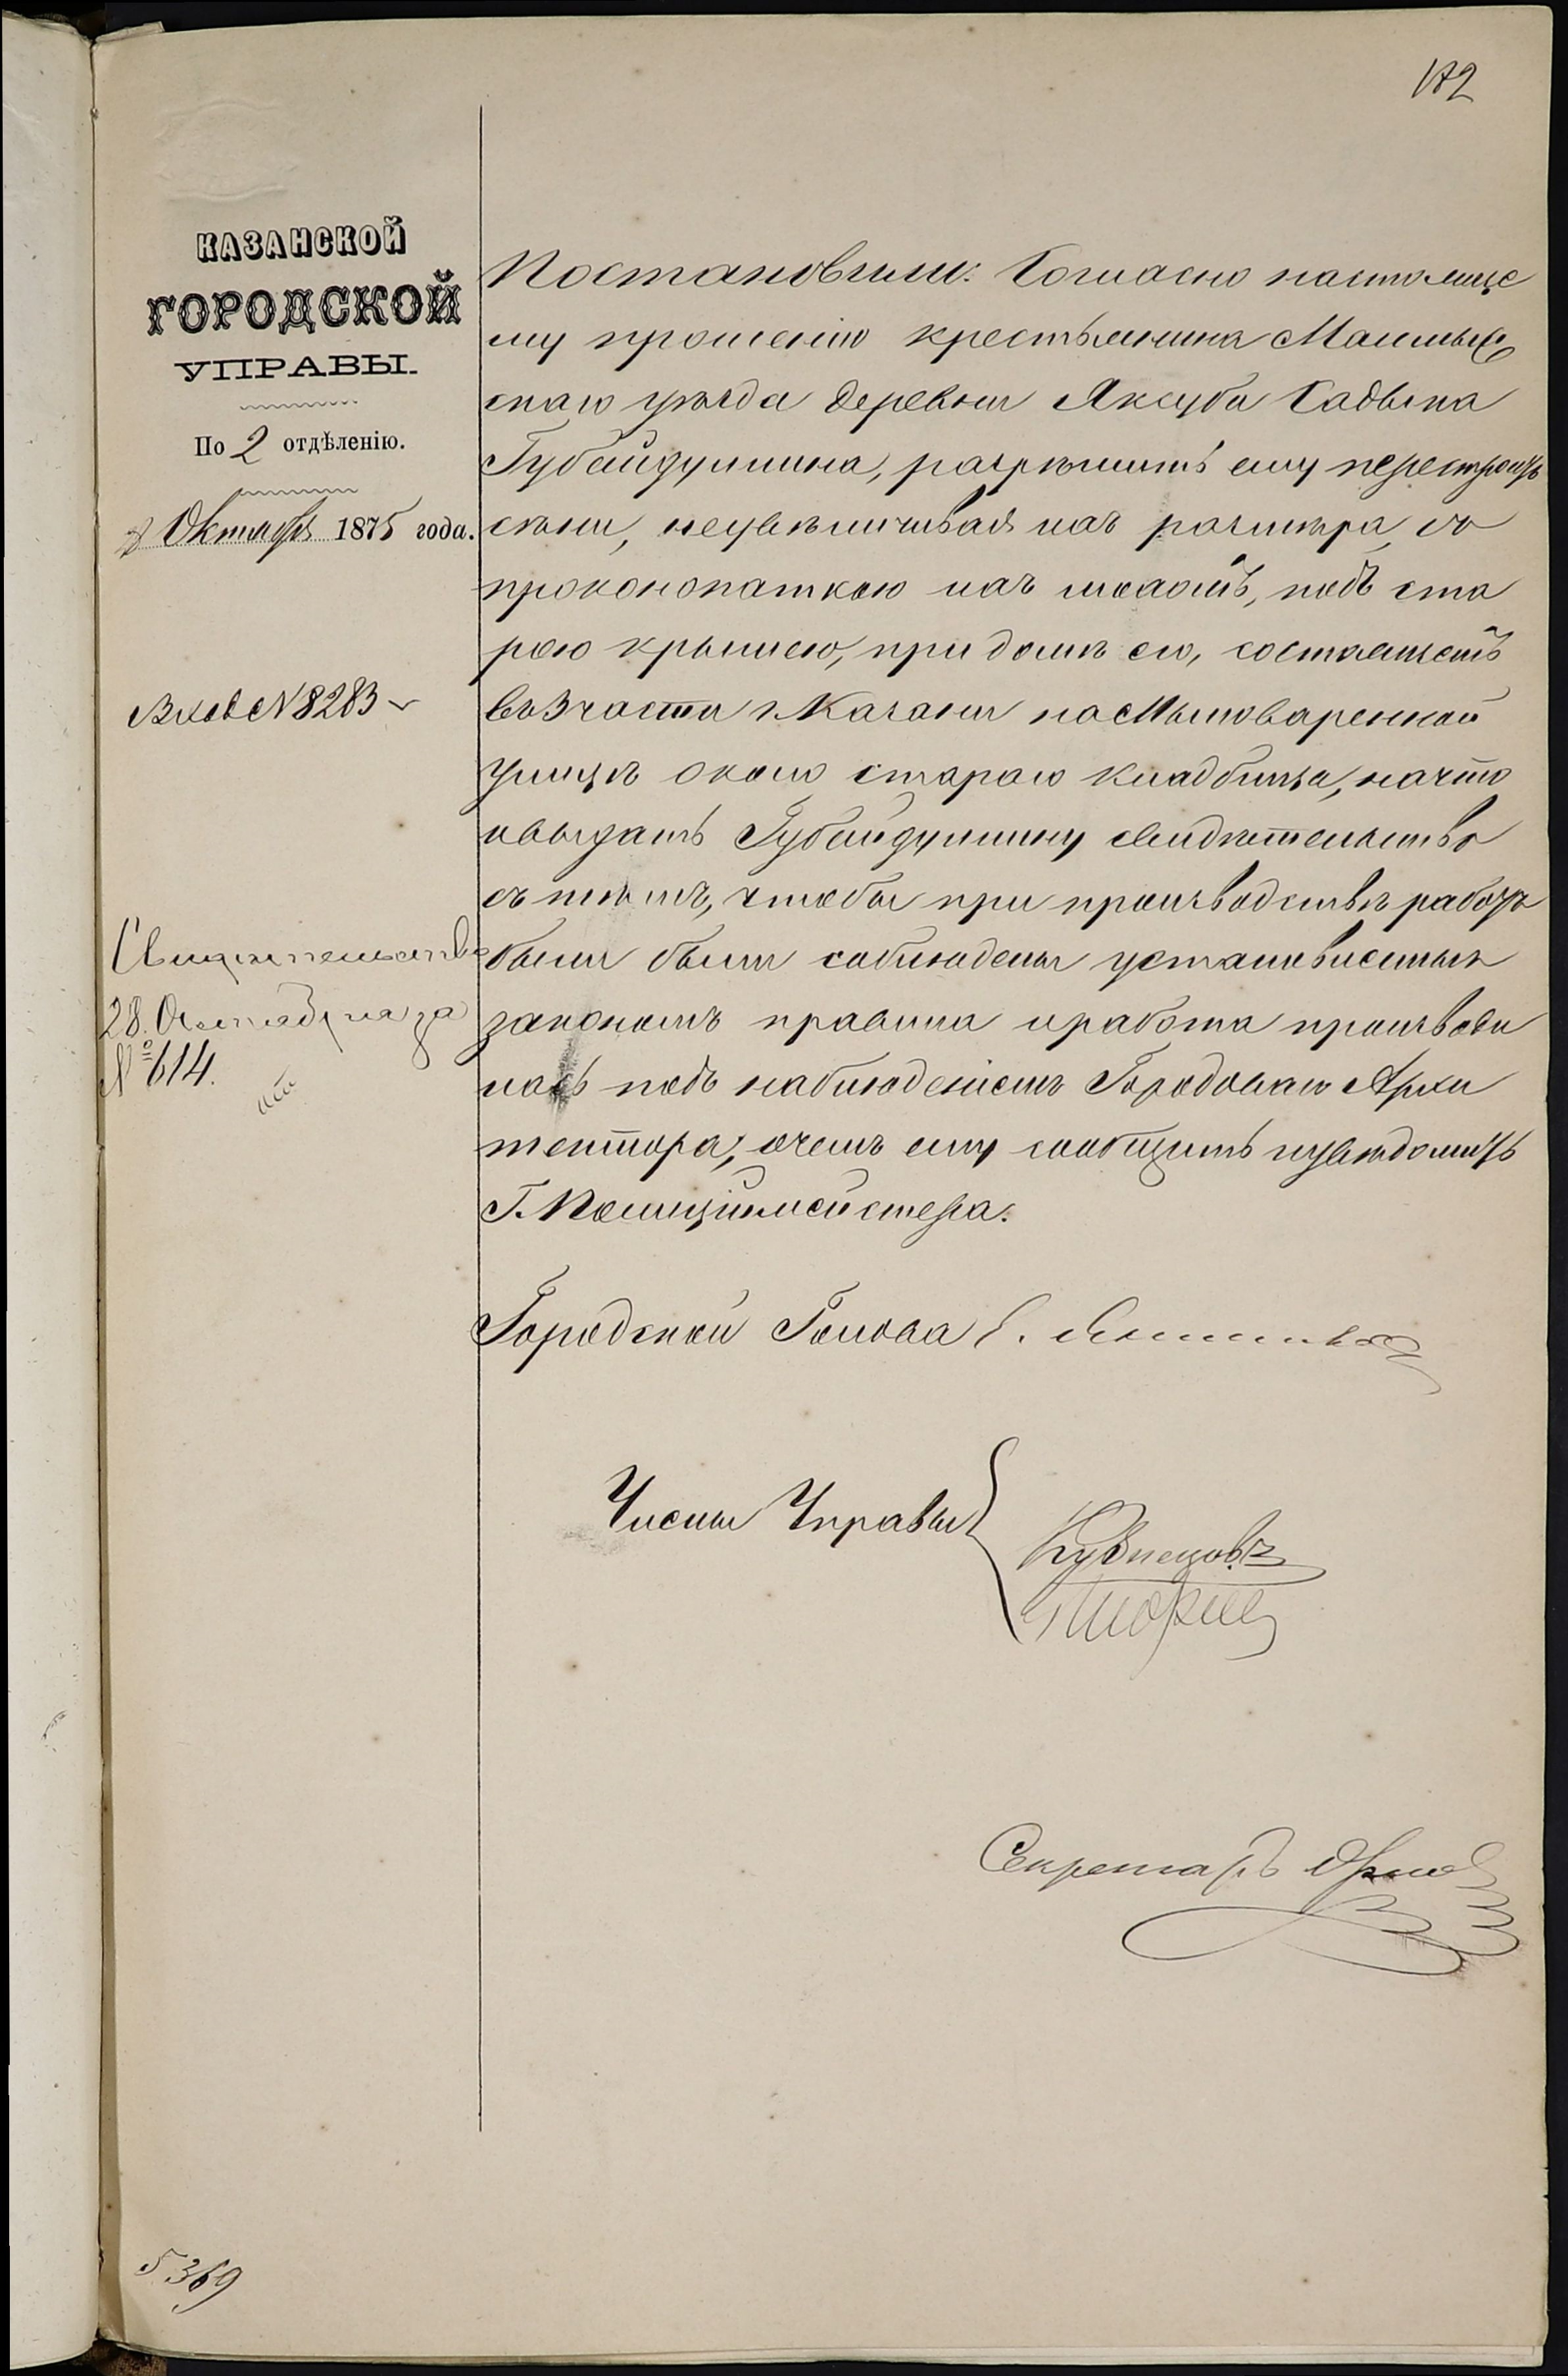 172
КАЗАНСКОЙ
ГОРОДСКОЙ
УПРАВЫ.
По 2 отдѣленію.
Октября 1875 года.
Вход №8283
Свидѣтельство
28. Октября за
№614.
Постановили: Согласно настояще
му прошенію крестьянина Мамыш
скаго уѣзда деревни Аксуби Садыка
Губайдуллина, разрѣшить ему перестроить
сѣни, неувѣличивая ихъ размѣра, съ
проконопаткою ихъ мохомъ, подъ ста
рою крышею, при домѣ его, состоящемъ
въ 3 части г. Казани на Мыловаренной
улицѣ около стараго кладбища, на что
и выдать Губайдуллину свидѣтельство
съ тѣмъ, чтобы при производствѣ работъ
были были соблюдены установленныя
закономъ правила и работа производи
лась подъ наблюденіемъ Городскаго Архи
тектора, о чемъ ему сообщить и увѣдомить
Г. Полицiймейстера.
Городской Голова
Члены Управы
Кузнецовъ
Секретарь
5369